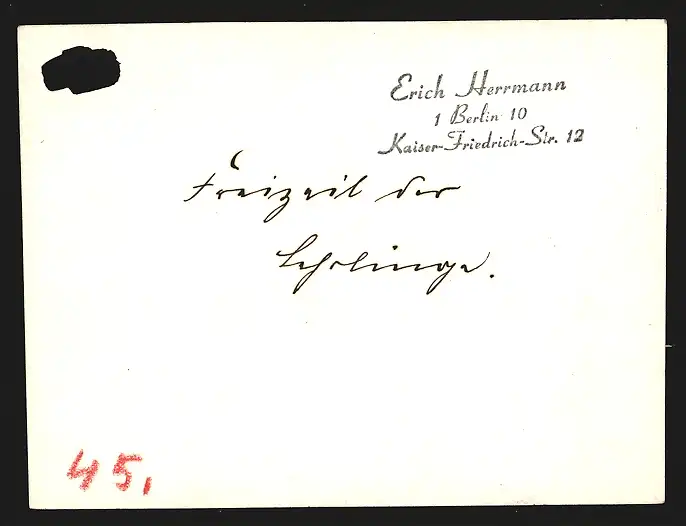 Erich Herrmann
1 Berlin 10
Kaiser-Friedrich-Str. 12
Freizeit der
Lehrlinge.
45,